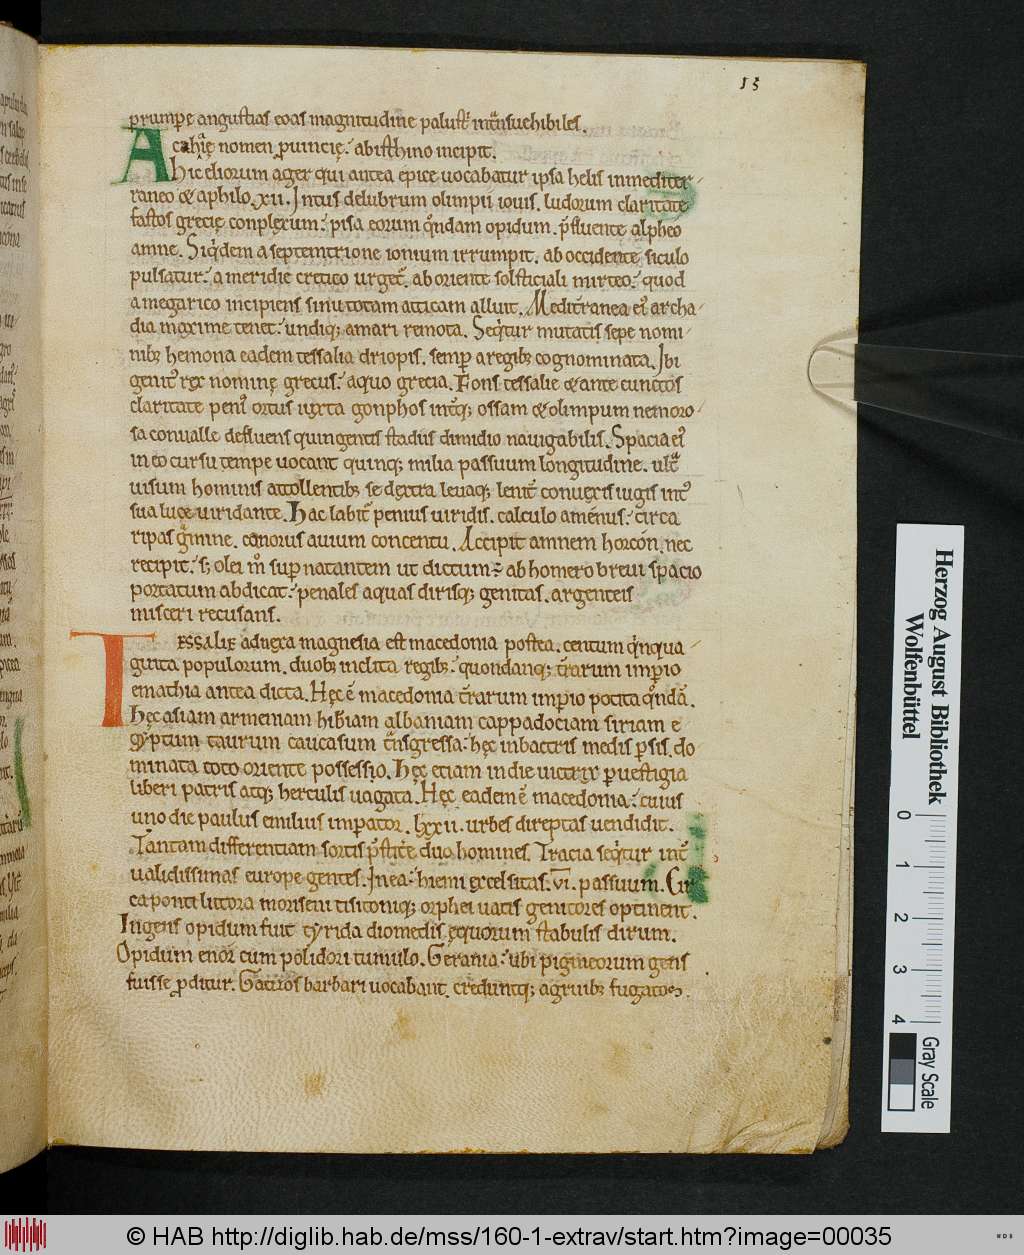 15
prumpe angustias eoas magnitudine palustr
Achaię nomen prouincię. ab isthino incipit.
Hic eliorum ager qui antea epice uocabatur ipsa helis inmediter
raneo & aphilo .xii. Intus delubrum olimpii iouis. ludorum claritate
fastos gręcię conplexum. pisa eorum quondam opidum. pfluente alpheo
amne. Siqdem a septemtrione ionium irrumpit. ab occidente siculo
pulsatur. a meridie cretico urget. ab oriente solsticiali mirteo. quod
a megarico incipiens sinu totam atticam alluit. Mediterranea ei archa
dia maxime tenet. undiq; a mari remota. Seqtur mutatis sepe nomi
nib; hemona eadem tessalia driopis. semp a regib; cognominata. Ibi
genit rex nominę grecus. a quo grecia. Fons tessalie & ante cunctos
claritate peni ortus iuxta gonphos intq; ossam & olimpum nemoro
sa conualle defluens quingentis stadiis dimidio nauigabilis. Spacia ei
in eo cursu tempe uocant quinq; milia passuum longitudine. ult
uisum hominis attollentib; se dextra leuaq; lenit conuexis iugis int
sua luce uiridante. Hac labit penius uiridis. calculo amenus. circa
ripas gmine. canorus auium concentu. Accipit amnem horcon. nec
recipit. s; olei m supnatantem ut dictum ÷ ab homero breui spacio
portatum abdicat. penales aquas dirisq; genitas. argenteis
misceri recusans.
TESSALIE adnexa magnesia est macedonia postea. centum qnqua
ginta populorum. duob; inclita regib;. quondanq; trarum impio
emathia antea dicta. Hęc ē macedonia trarum impio potita qndā.
Hęc asiam armeniam hibiam albaniam cappadociam siriam e
gyptum taurum caucasum tnsgressa. hęc in bactris medis psis. do
minata toto oriente possessio. Hęc etiam indie uictrix p uestigia
liberi patris atq; herculis uagata. Hęc eadem ē macedonia. cuius
uno die paulus emilius impator .lxxii. urbes direptas uendidit.
Tantam differentiam sortis pstite duo homines. Tracia seqtur int
ualidissimas europe gentes. In ea. hiemi excelsitas. vi. passuum. Cir
ca ponti littora moriseni sitoniiq; orphei uatis genitores optinent.
Ingens opidum fuit tyrida diomedis equorum stabulis dirum.
Opidum enor cum polidori tumulo. Gerania. ubi pigmeorum gens
fuisse pditur. Gattios barbari uocabant. creduntq; a gruib; fugatos.
Herzog August Bibliothek
Wolfenbüttel
0
1
2
3
4
Gray Scale
© HAB http://diglib.hab.de/mss/160-1-extrav/start.htm?image=00035